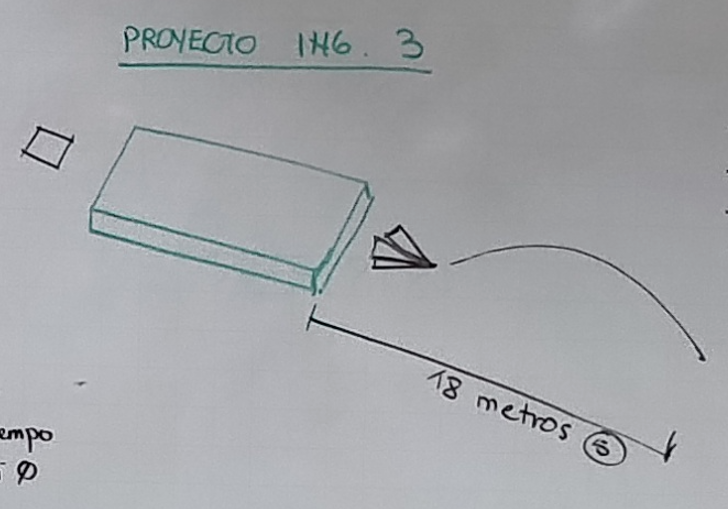 PROYECTO ING. 3
18 metros 5
empo
φ